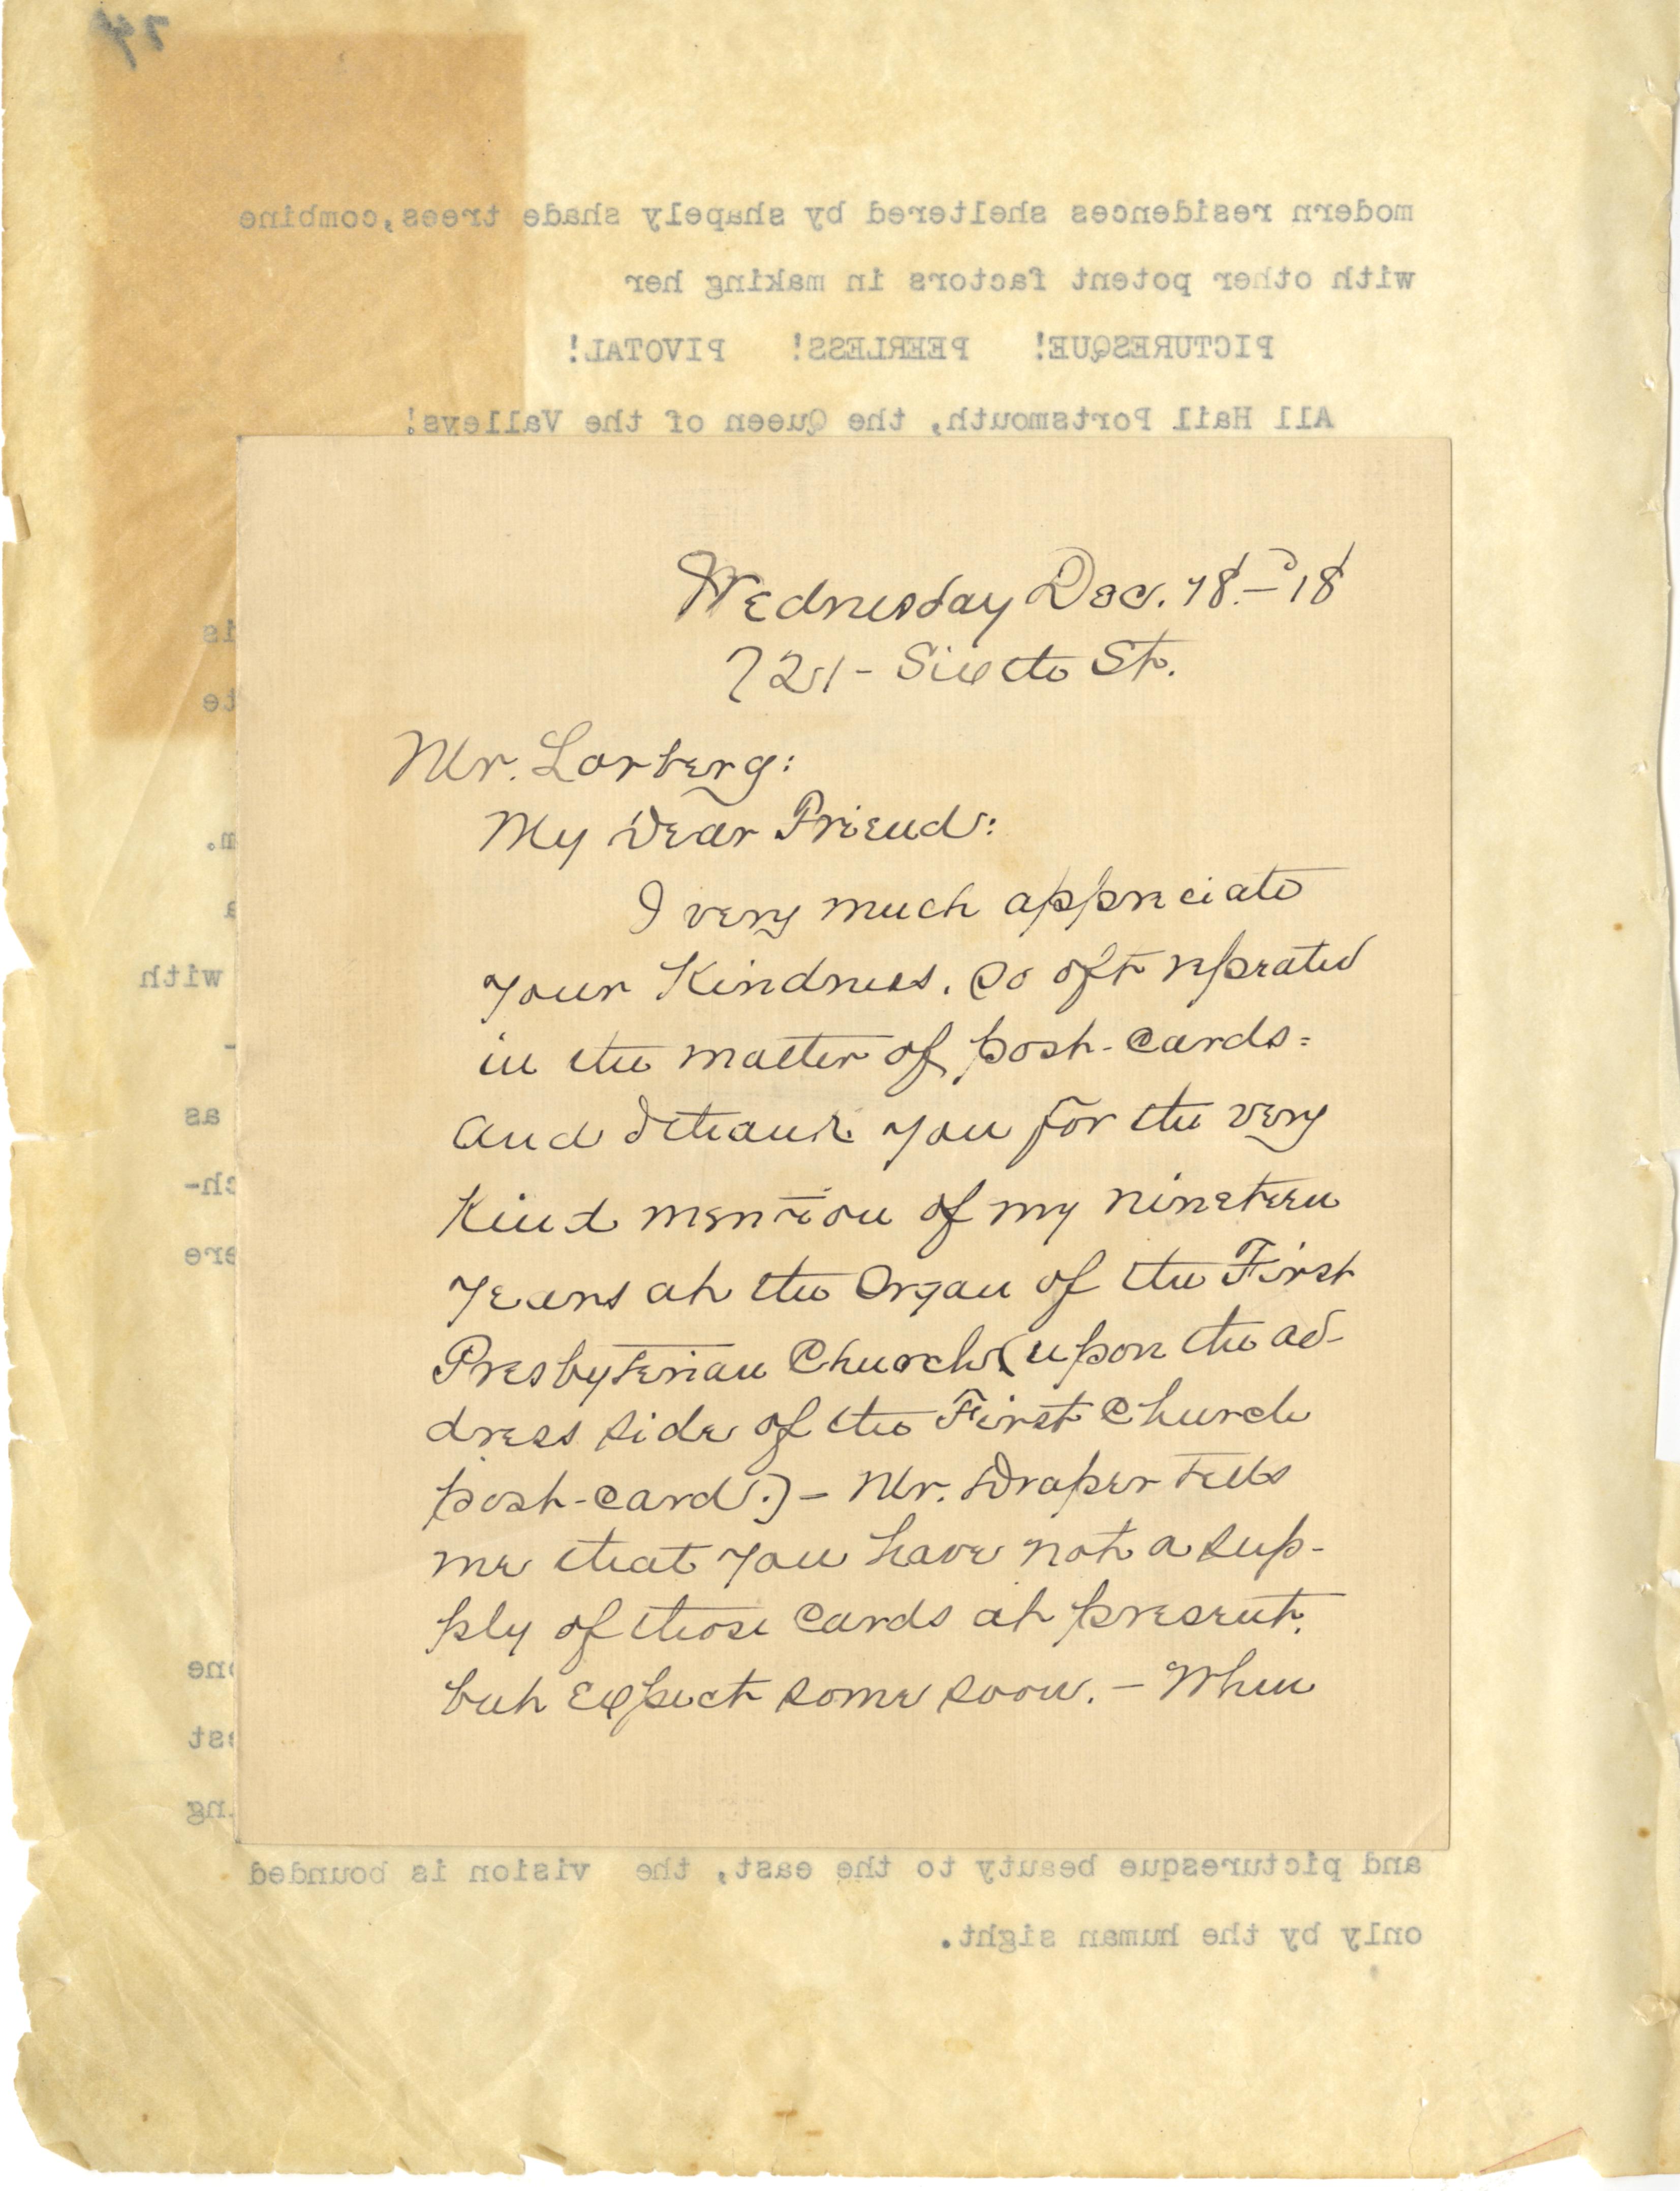 74
modern residences sheltered by shapely shade trees,combine
with other potent factors in making her
PICTURESQUE! PEERLESS! PIVOTAL!
All Hail Portsmouth, the Queen of the Valleys!
Wednesday Dec. 18.–'18
721 - Sixth St.
Mr. Lorberg:
My Dear Friend:
I very much appreciate
your Kindness, so oft repeated
in the matter of post-cards-
and I thank you for the very
Kind mention of my nineteen
years at the Organ of the First
Presbyterian Church (upon the ad-
dress side of the First Church
post-card.) – Mr. Draper tells
me that you have not a sup-
ply of those cards at present,
but expect some soon. – When
is
te
m.
a
with
-
as
ch-
ere
one
est
ing
and picturesque beauty to the east, the vision is bounded
only by the human sight.